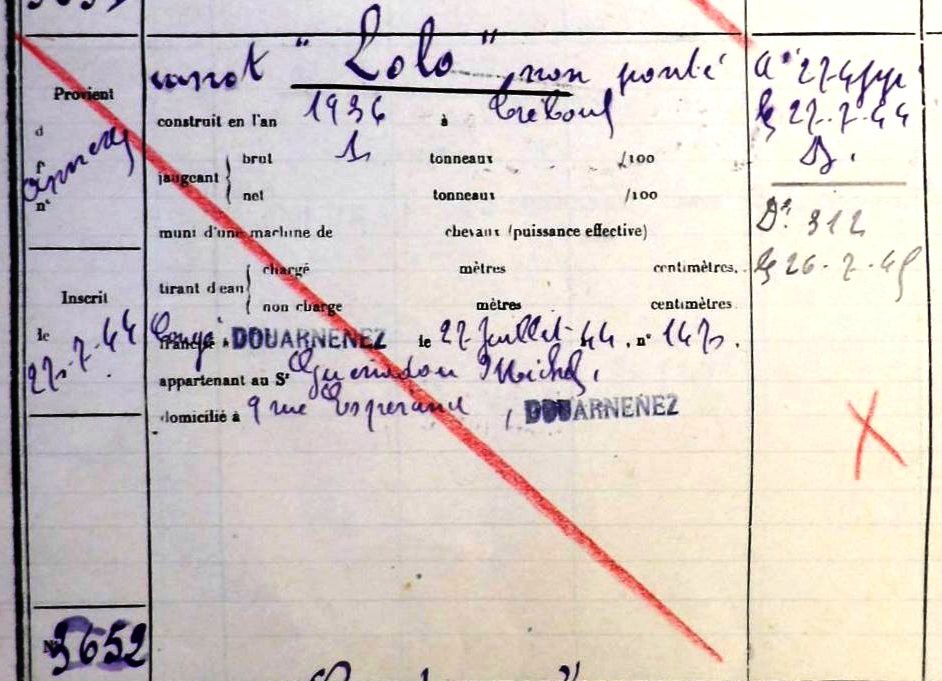 Provient
d
n°
Inscrit
le
27-7-44
N° 3652
canot "Lolo" non ponté
construit en l'an 1936 à Tréboul
jaugeant
brut 1 tonneaux /100
net tonneaux /100
muni d'une machine de chevaux (puissance effective)
tirant d'eau
chargé mètres centimètres.
non chargé mètres centimètres
Congé à DOUARNENEZ le 27 Juillet 44. n° 147
appartenant au Sr Michel.
domicilié à 9 rue DOUARNENEZ
27-7-44
D. 312
26-7-45
X